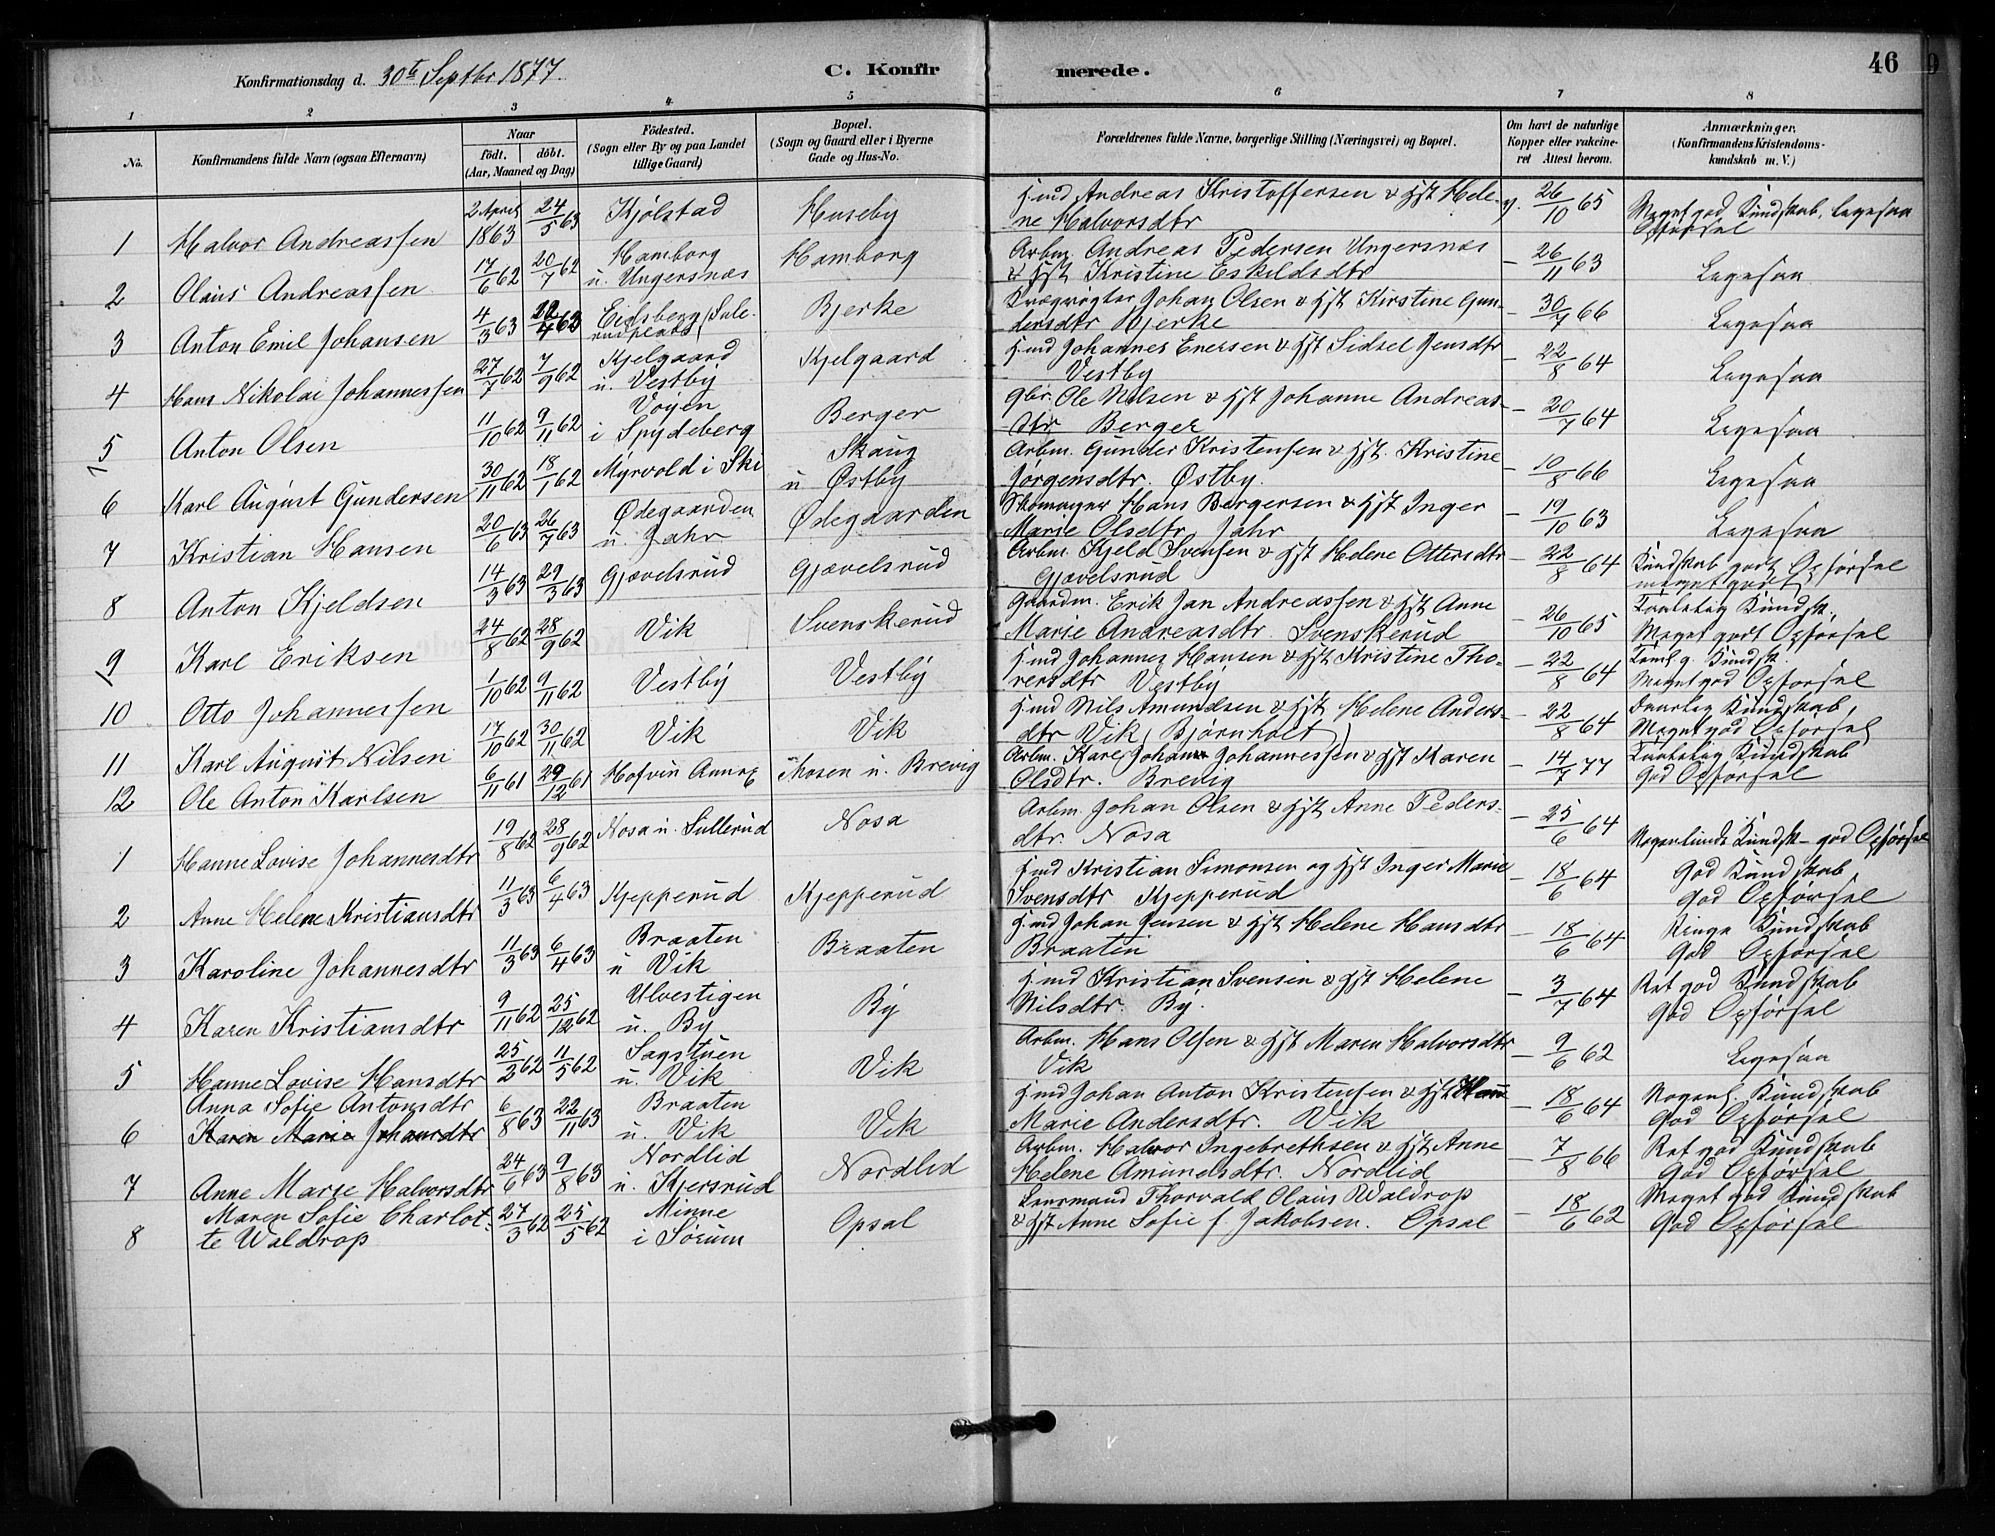 Konfirmationsdag d. 30te Septbr 1877.
C. Konfirmerede.
46
1 2 3 4 5 6 7 8
No.
Konfirmandens fulde Navn (ogsaa Efternavn)
Naar
født. døbt.
(Aar, Maaned og Dag)
Fødested.
(Sogn eller By og paa Landet
tillige Gaard)
Bopæl.
(Sogn og Gaard eller i Byerne
Gade og Hus-No.
Forældrenes fulde Navne, borgerlige Stilling (Næringsvei) og Bopæl.
Om havt de naturlige
Kopper eller vakcine-
ret Attest herom.
Anmærkninger.
(Konfirmandens Kristendoms-
kundskab m. V.)
1 Halvor Andreassen 2 April 1863 24/5 63 Kjølstad Huseby Hmd Andreas Kristoffersen & Hst Hele-
ne Halvorsdtr v. 26/10 65 Meget god Kundskab, Ligesaa
Opførsel
2 Olaus Andreassen 17/6 62 20/7 62 Hamborg
u. Ungersnæs Hamborg Arbm. Andreas Pedersen Ungersnæs
& Hst Kristine Eskildsdtr – 26/11 63 Ligesaa
3 Anton Emil Johansen 4/3 63 Eidsberg Bjerke Johan Olsen & Hst Kirstine Gun-
dersdtr Bjerke – 30/7 66 Ligesaa
4 Hans Nikolai Johannessen 27/7 62 7/9 62 Kjelgaard
u. Vestby Kjelgaard Hmd Johannes Enersen & Hst Sidsel Jensdtr
Vestby – 22/8 64 Ligesaa
5 Anton Olsen 11/10 62 9/11 62 Vøyen
i Spydeberg Berger Gbr. Ole Nilsen & Hst Johanne Andreas-
dtr Berger – 20/7 64 Ligesaa
6 Karl August Gundersen 30/11 62 18/1 62 Myrvold i Ski Skaug
u Østby Arbm. Gunder Kristensen & Hst. Kristine
Jørgensdtr. Østby. – 10/8 66 Ligesaa
7 Kristian Hansen 20/6 63 26/7 63 Ødegaarden
u. Jahr Ødegaarden Skomager Hans Borgersen & Hst Inger
Marie Olsdtr Jahr – 19/10 63 Ligesaa
8 Anton Kjeldsen 14/3 63 29/3 63 Gjævelsrud Gjævelsrud Arbm. Kjeld Svensen & Hst Helene Ottersdtr
Gjævelsrud – 22/8 64 Kundskab godt Opførsel
meget godt
9 Karl Eriksen 24/8 62 28/9 62 Vik Svenskerud Gaardm. Erik Jan Andreassen & Hst Anne
Marie Andreasdtr. Svenskerud – 26/10 65 Taalelig Kundsk.
Meget godt Opførsel
10 Otto Johannessen 1/10 62 9/11 62 Vestby Vestby Hmd Johannes Hansen & Hst Kristine Tho-
rersdtr Vestby – 22/8 64 Kundsk.
Meget god Opførsel
11 Karl August Nilsen 17/10 62 30/11 62 Vik Vik Hmd Nils Amundsen & Hst Helene Anders-
dtr Vik (Bjørnholt) – 22/8 64 Daarlig Kundskab,
Meget god Opførsel
12 Ole Anton Karlsen 6/11 61 29/12 61 Hofvin Annex Mosen u. Brevig Arbm. Karl Johan Johannessen & Hst Karen
Olsdtr. Brevig – 14/7 77 Taalelig Kundskab
God Opførsel
1 Hanne Lovise Johannesdtr 19/8 62 28/9 62 Nosa u. Sullerud Nosa Arbm. Johan Olsen & Hst Anne Peders-
dtr. Nosa – 25/6 64 Nogenlunde Kundsk – god Opførsel
2 Anne Helene Kristiansdtr 11/3 63 6/4 63 Kjepperud Kjepperud Hmd Kristian Simonsen og Hst Inger Marie
Svensdtr Kjepperud – 18/6 64 God Kundskab
God Opførsel
3 Karoline Johannesdtr 11/3 63 6/4 63 Braaten
u Vik Braaten Hmd Johan Jensen & Hst Helene Hansdtr
Braaten – 18/6 64 Ringe Kundskab
God Opførsel
4 Karen Kristiansdtr 9/11 62 25/12 62 Ulvestigen
u. By By Hmd Kristian Svensen & Hst Helene
Nilsdtr. By. – 3/7 64 Ret god Kundskab
God Opførsel
5 Hanne Lovise Hansdtr 25/2 62 11/5 62 Sagstuen
u. Vik Vik Arbm. Hans Olsen & Hst Maren Halvorsdtr
Vik – 9/6 62 Ligesaa
6 Anna Sofie Antonsdtr
Karen Marie Johansdtr 6/8 63 22/11 63 Braaten
u. Vik Vik Hmd Johan Anton Kristensen & Hst
Marie Andersdtr. Vik – 18/6 64 Nogenl. Kundskab
God Opførsel
7 Anne Marie Halvorsdtr 24/6 63 9/8 63 Nordlid
u. Kjersrud Nordlid Arbm. Halvor Ingebrethsen & Hst Anne
Helene Amundsdtr. Nordlid – 7/8 66 Ret god Kundskab
God Opførsel
8 Maren Sofie Charlot-
te Waldrop 27/3 62 25/5 62 Minne
i Sørum Opsal Lensmand Thorvald Olaus Waldrop
& Hst Anne Sofie f. Jakobsen. Opsal – 18/6 62 Meget god Kundskab
God Opførsel